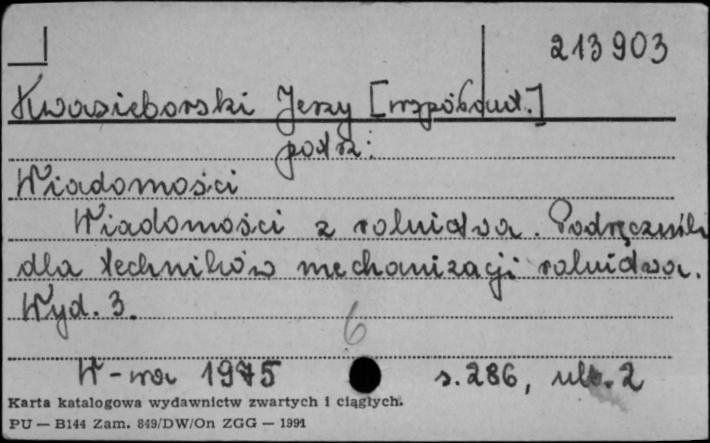 213903
Kwasieborski Jerzy [współaut.]
patrz:
Wiadomości
Wiadomości z rolnictwa. Podręcznik
dla techników mechanizacji rolnictwa.
Wyd. 3.
6
W-wa 1975 s.286, nlb. 2
Karta katalogowa wydawnictw zwartych i ciągłych.
PU — B144 Zam. 849/DW/On ZGG — 1991